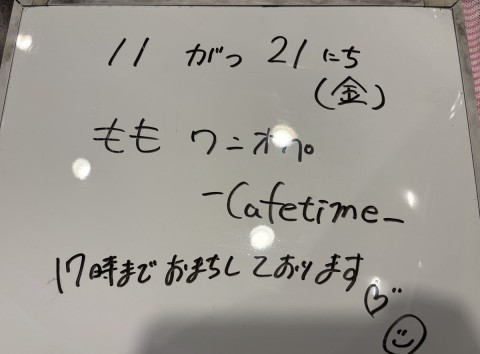 11 がつ 21 にち
(金)
もも ワニオペ
-Cafetime-
17時まで おまちしております